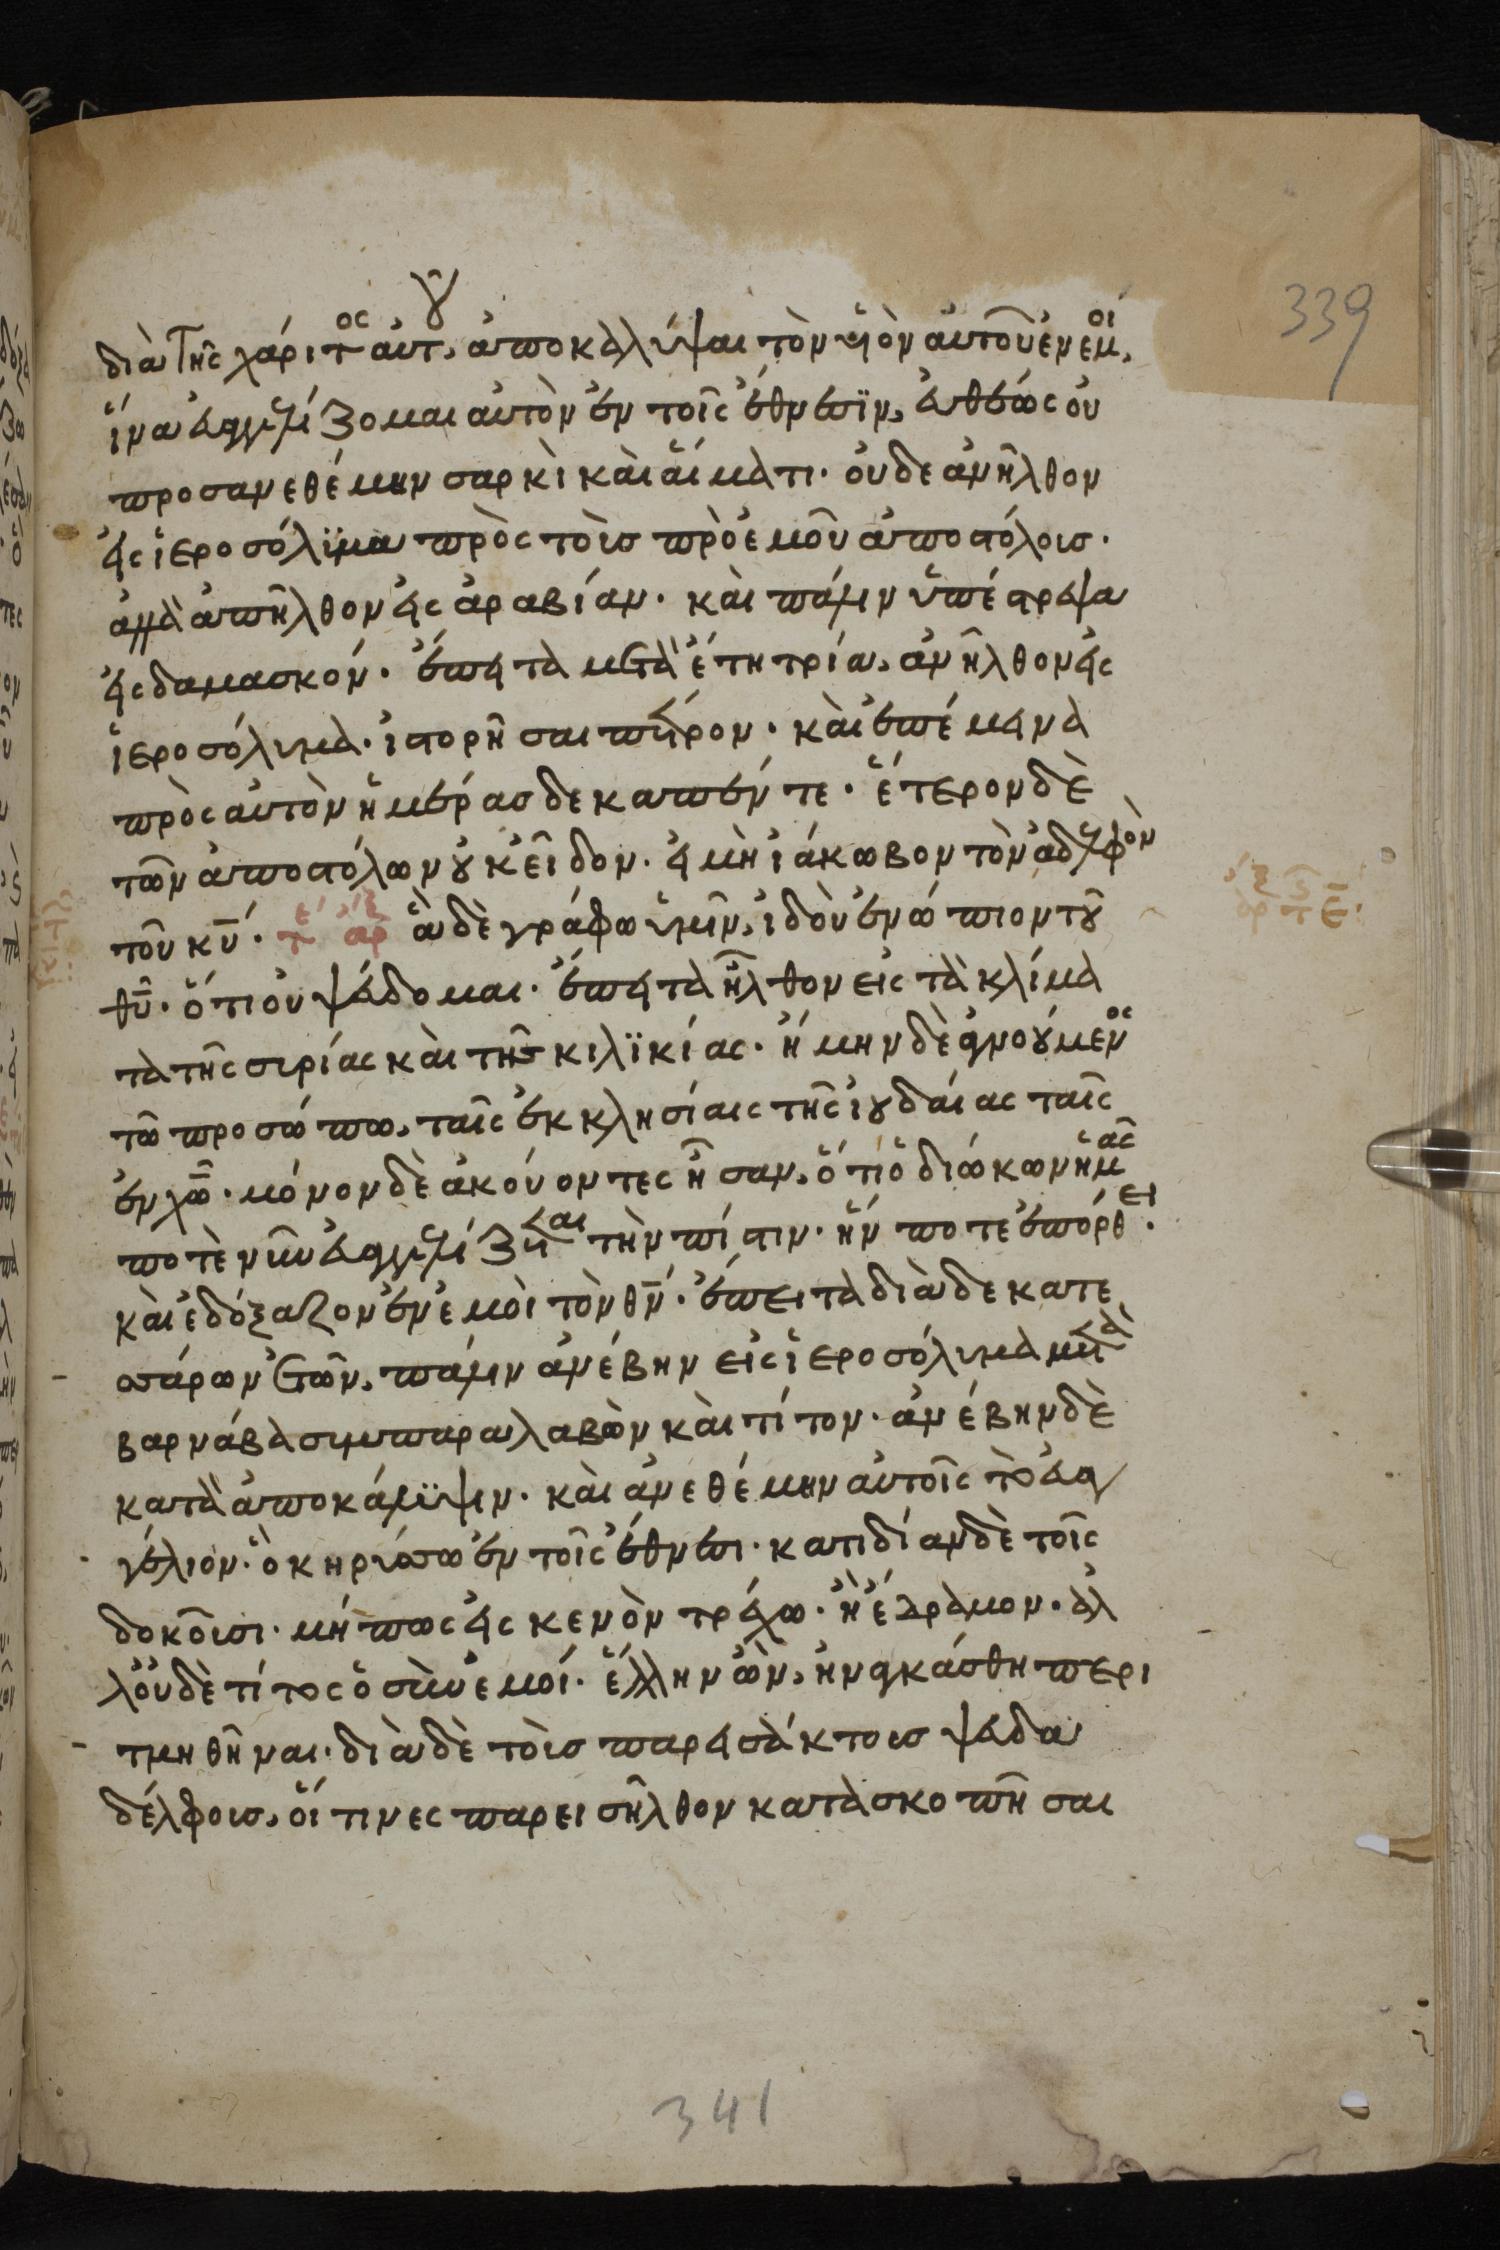 339
διὰ τῆς χάριτος αὐτοῦ, ἀποκαλύψαι τὸν υἱὸν αὐτοῦ ἐν ἐμοί,
ἵνα εὐαγγελίζομαι αὐτὸν ἐν τοῖς ἔθνεσϊν, εὐθέως οὐ
προσανεθέμην σαρκὶ καὶ αἵματι· οὐδε ἀνῆλθον
εἰς ἱεροσόλϋμα πρὸς τοὺσ πρὸ ἐμοῦ ἀποστόλουσ·
ἀλλὰ ἀπῆλθον εἰς ἀραβίαν· καὶ πάλιν ὑπέστρεψα
εἰς δαμασκόν· ἔπειτα μετὰ ἔτη τρία, ἀνῆλθον εἰς
ἱεροσόλυμα· ἱστορῆσαι πέτρον· καὶ ἐπέμεινα
πρὸς αὐτὸν ἡμέρασ δεκαπέντε· ἕτερον δὲ
τῶν ἀποστόλων οὐκ εἶδον· εἰ μὴ ἰάκωβον τὸν ἀδελφὸν
τοῦ κῦ· ἃ δὲ γράφω ὑμῖν, ἰδοὺ ἐνώπιον τοῦ
θῦ· ὅτι οὐ ψεύδομαι· ἔπειτα ἦλθον εἰς τὰ κλίμα
τα τῆς συρίας καὶ τῆς κιλϊκίας· ἤμην δὲ ἀγνοούμενος
τῶ προσώπω, ταῖς ἐκκλησίαις τῆς ἰουδαίας ταῖς
ἐν χῶ· μόνον δὲ ἀκούοντες ἦσαν, ὅτι ὁ διώκων ἡμᾶς
ποτὲ νῦν εὐαγγελίζεται τὴν πίστιν· ἥν ποτε ἐπόρθει·
καὶ ἐδόξαζον ἐν ἐμοὶ τὸν θν· ἔπειτα διὰ δεκατε
σσάρων ἐτῶν, πάλιν ἀνέβην εἰς ἱεροσόλυμα μετὰ
βαρνάβα συμπαραλαβὼν καὶ τίτον· ἀνέβην δὲ
κατὰ ἀποκάλϋψιν· καὶ ἀνεθέμην αὐτοῖς τὸ εὐαγ
γέλιον· ὃ κηρύσσω ἐν τοῖς ἔθνεσι· κατιδίαν δὲ τοῖς
δοκοῦσι· μήπως εἰς κενὸν τρέχω· ἢ ἔδραμον· ἀλ
λ' οὐδὲ τίτος ὁ σὺν ἐμοί· ἕλλην ὢν, ἠναγκάσθη περι
τμηθῆναι· διὰ δὲ τοὺσ παρεισάκτουσ ψευδα
δέλφουσ, οἵτινες παρεισῆλθον κατασκοπῆσαι
341